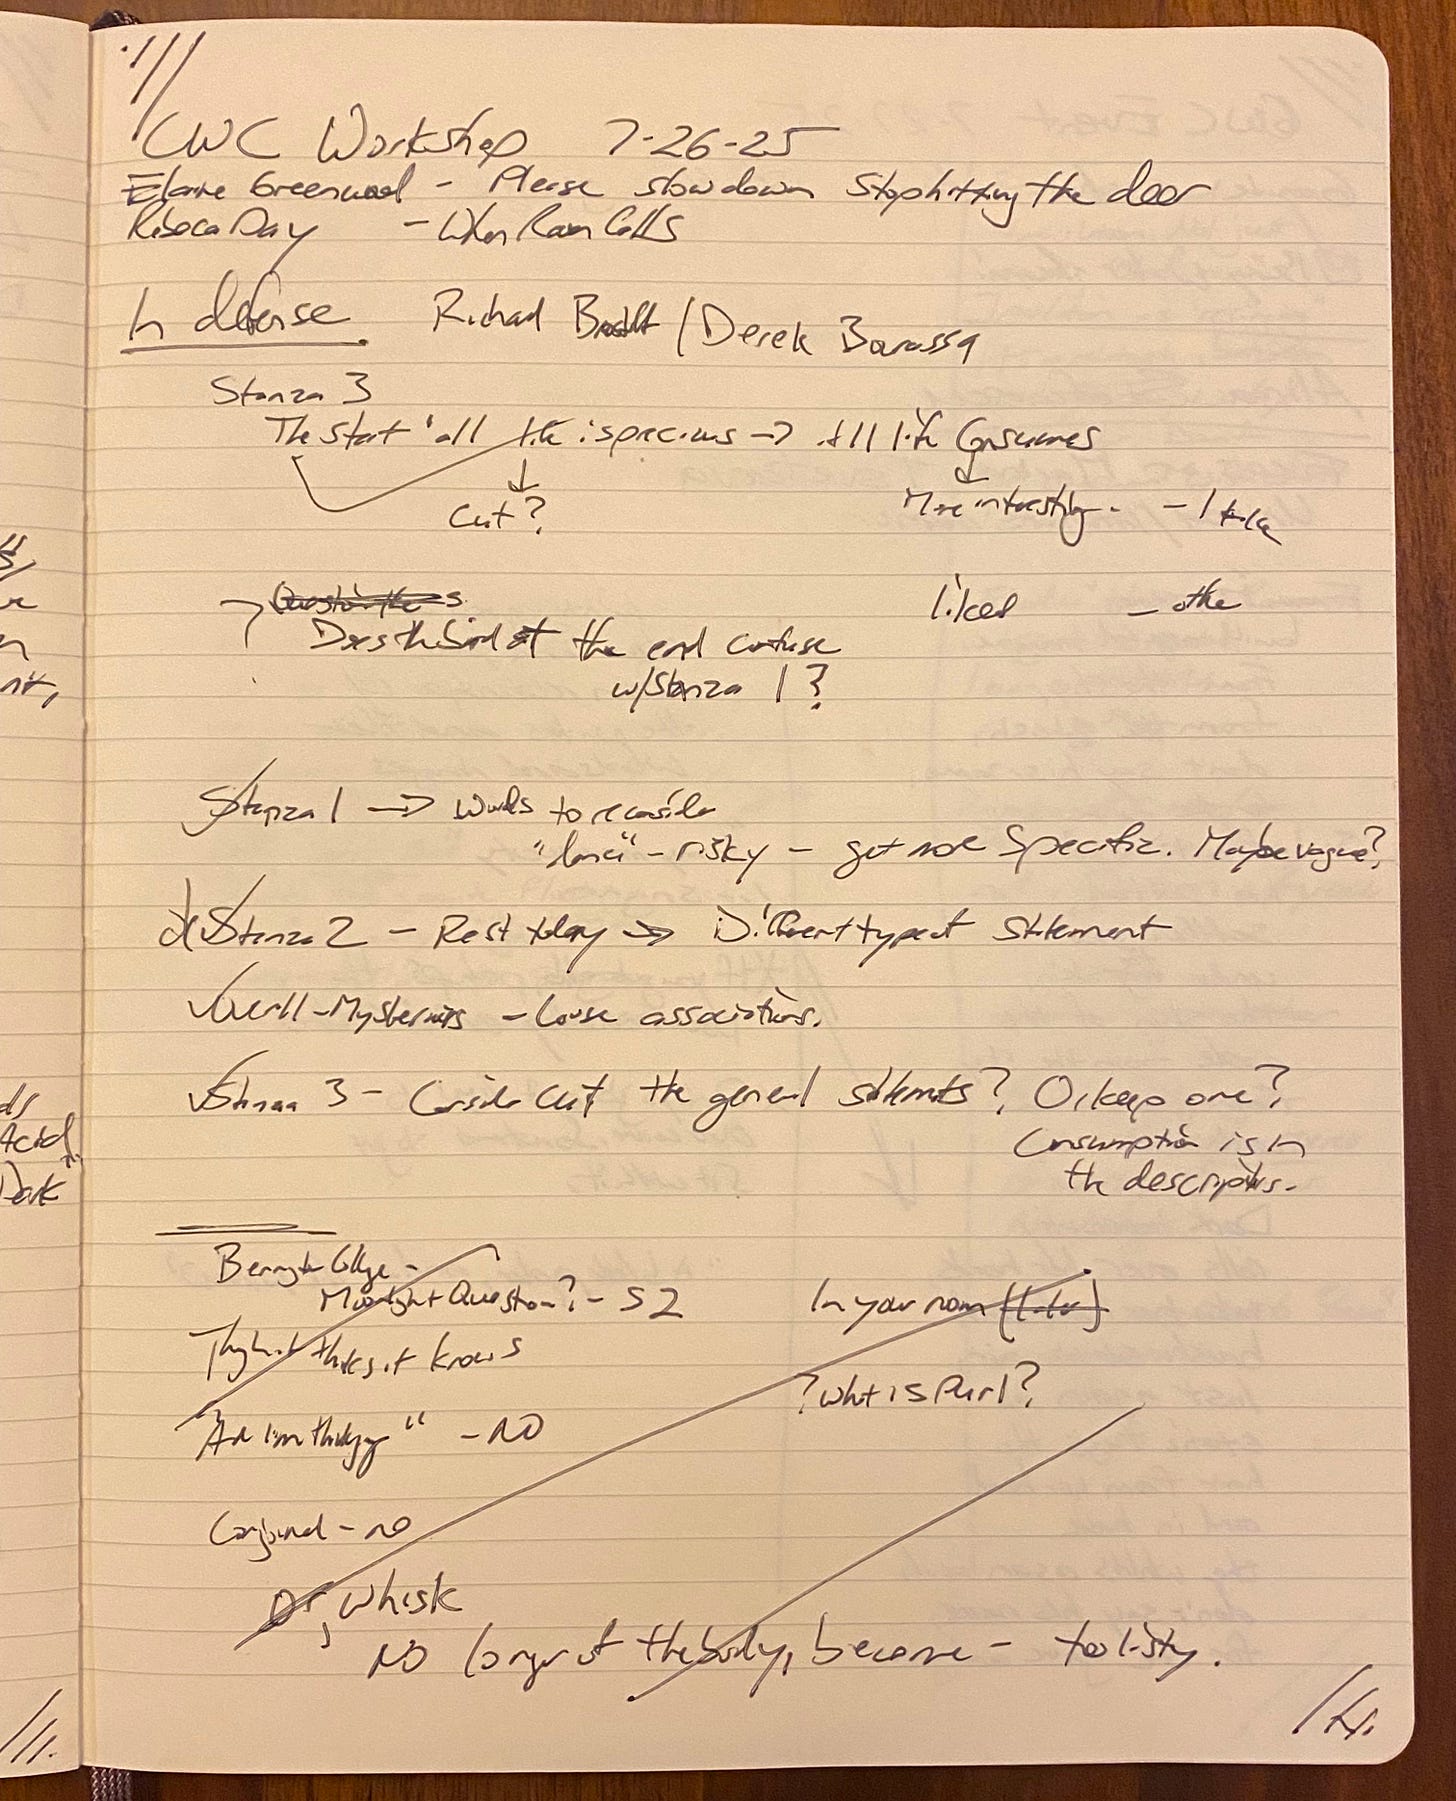 CWC Workshop 7-26-25
Elaine Greenwood - Please slow down Stop hitting the deer
Rebeca Day - When Rain Calls
In defense Richard / Derek Barassa
Stanza 3
The start 'all life is precious → All life Consumes
Cut?
More interesting. - I
liked - other
Question the s
Does the bird at the end confuse
w/Stanza 1?
Stanza 1 → Words to reconsider
" - risky - get more Specific. Maybe vague?
Stanza 2 - Rest → Different type of Statement
Overall - Mysterious - Loose associations.
Stanza 3 - Consider Cut the general statements? Or keep one?
Consumption is in
the descriptions.
Bennington College -
Moonlight Question? - S2
thinks it knows
In your room
? What is Purl?
" - NO
Conjoined - no
Or, whisk
NO longer of the body, become - too listy.
ds
Acid
Dark